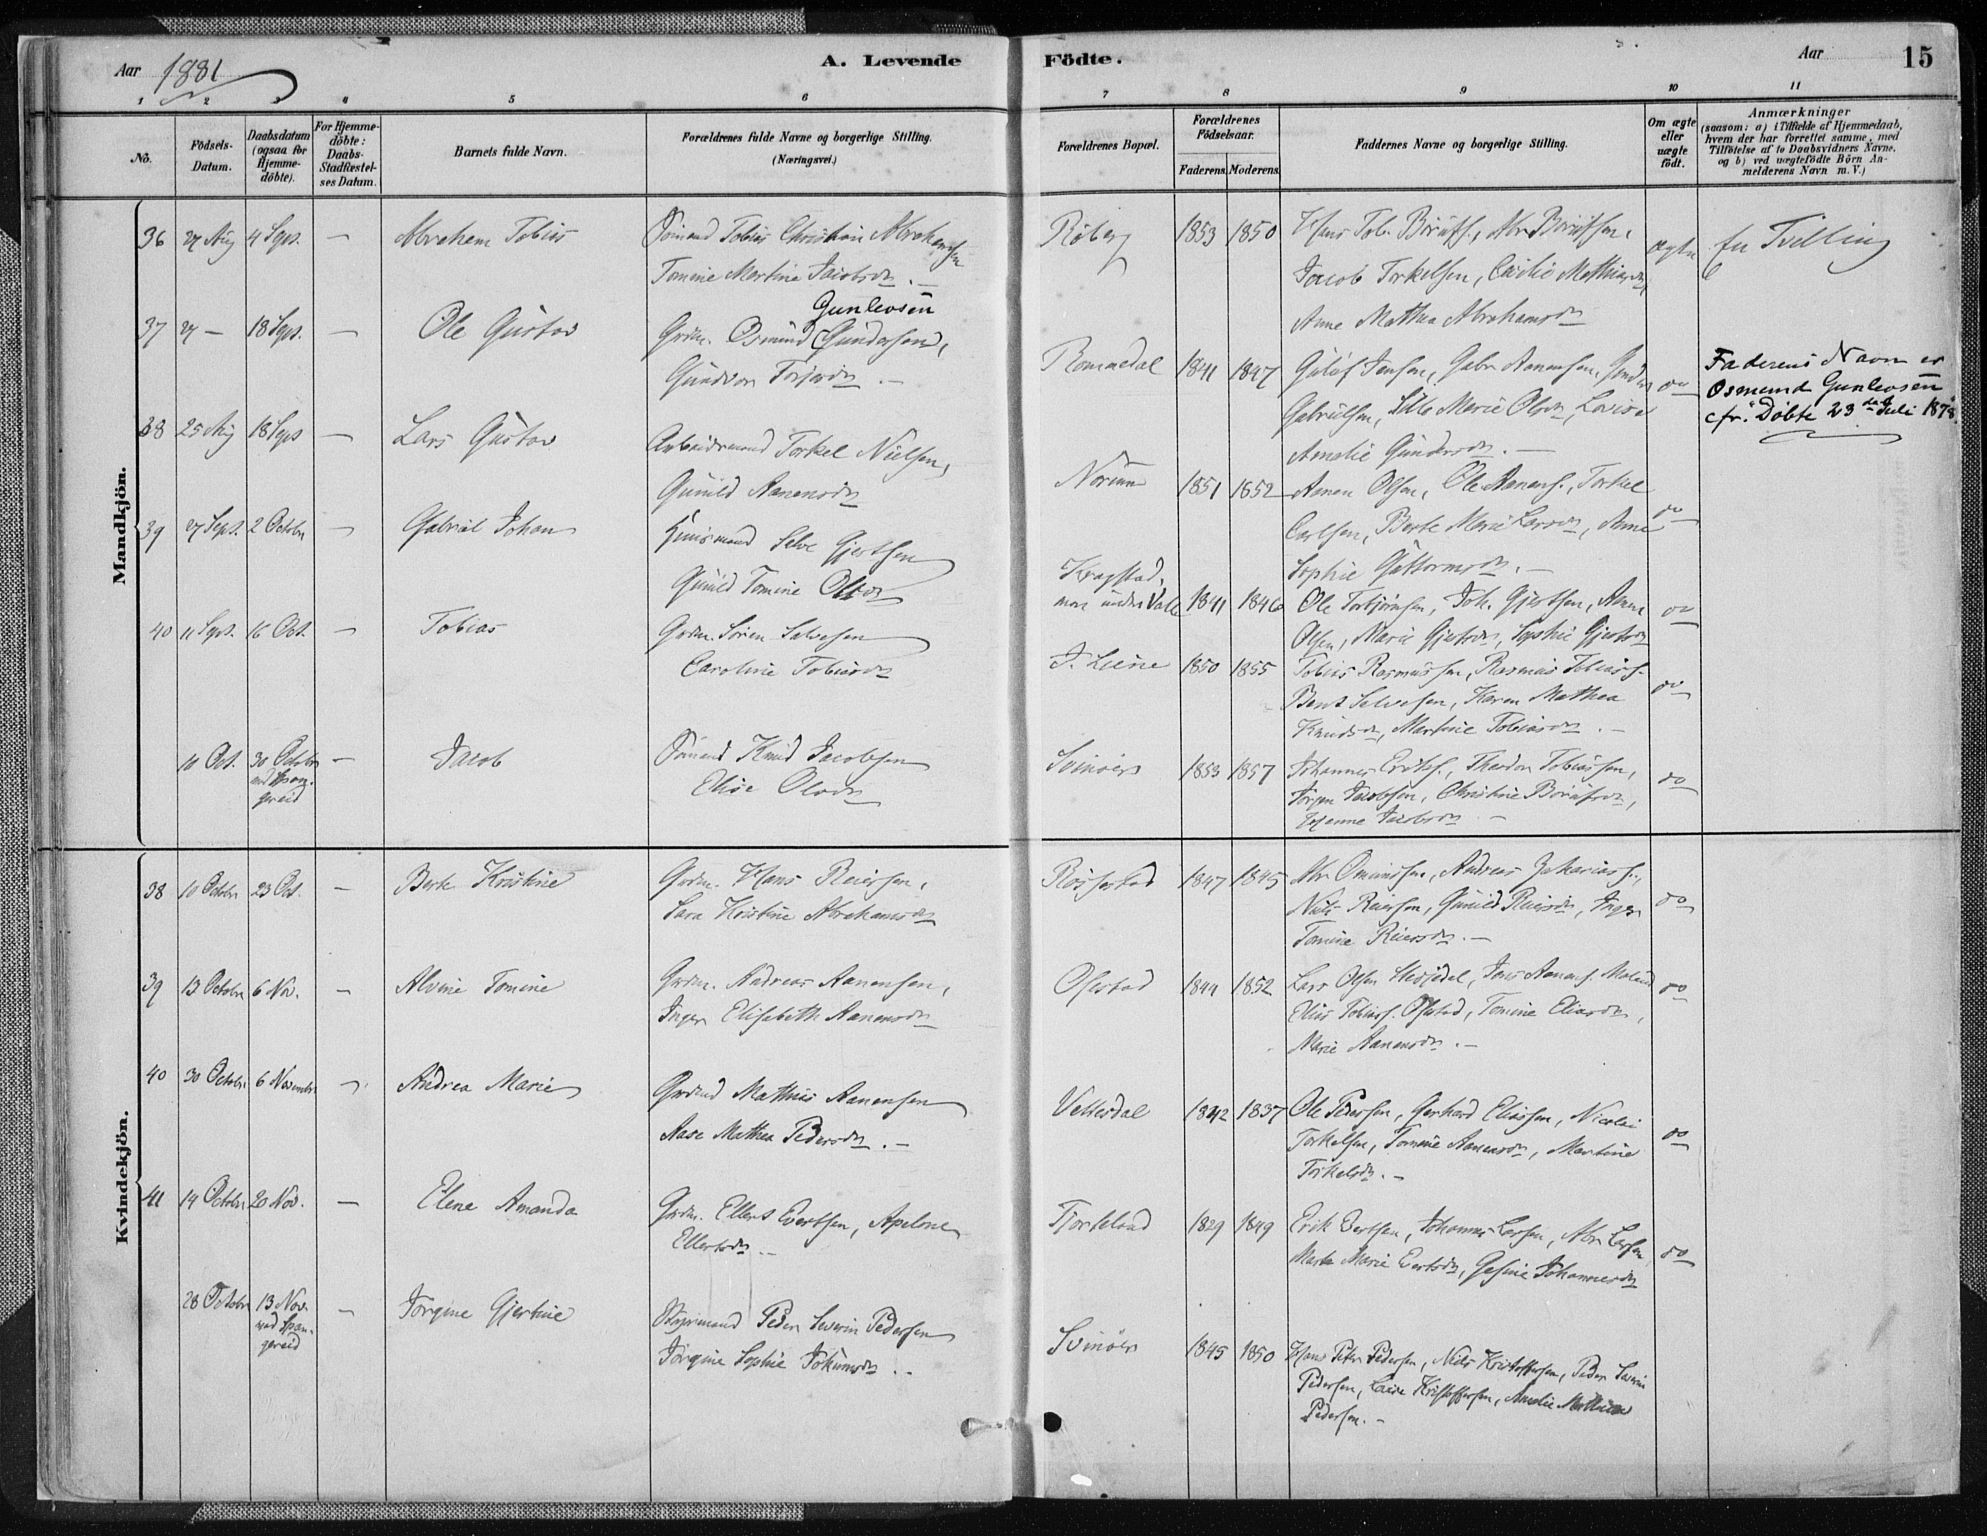 Aar 1881
A. Levende
Födte.
Aar
15
1 2 3 4 5 6
7 8 9 10 11
No.
Födsels-Datum.
Daabsdatum (ogsaa for Hjemme-döbte).
For Hjemme-döbte: Daabs-Stadfæstel-ses Datum.
Barnets fulde Navn.
Forældrenes fulde Navne og borgerlige Stilling.
(Næringsvei.)
Forældrenes Bopæl.
Forældrenes Födselsaar.
Faderens. Moderens.
Faddernes Navne og borgerlige Stilling.
Om ægte eller uægte födt.
Anmærkninger
(saasom: a) i Tilfælde af Hjemmedaab,
hvem der har forrettet samme, med
Tilföielse af to Daabsvidners Navne,
og b) ved uægtefödte Börn An-
melderens Navn m. V.)
Mandkjön.
36 27 Aug 4 Sept. — Abraham Tobias Sömand Tobias Christian Abrahamsen
Tomine Martine Jacobsdr. —
Röberg 1853 1850 Hans Tob. Börufs., Abr. Börufsen,
Jacob Torkelsen, Cecilie Mathiasdr,
Anne Mathea Abrahamsdr
ægte En Tvilling
37 27 — 18 Sept. — Ole Gustav Gunlevsen
Grdm. Osmund Gundersen,
Gunvor Torjersdr. —
Rommedal 1841 1847 Guluf Jensen, Gabr Aanensen, Gunder
Gabrielsen, Sille Marie Olsdr, Lovise
Amalie Gundersdr. —
do
Faderens Navn er
Osmund Gunlevsen
cfr. "Döbte 23de Juli 1878".
38 25 Aug 18 Sept — Lars Gustav Arbeidsmand Torkel Nielsen,
Gunild Aanensdr
1851 1852 Aanen Olsen, Ole Aanens., Torkel
Carlsen, Berte Marie Larsdr, Anne
Sophie Guttormsdr. —
do
39 27 Sept. 2 Octobr — Gabriel Johan Huusmand Salve Gjertsen
Gunild Tomine Olsdr
Kragstad,
under Valle 1841 1846 Ole Torbjörnsen, Joh. Gjertsen, Aanen
Olsen, Marie Gjertsdr, Sophie Gjertsdr
do
40 11 Sept. 16 Oct. — Tobias Grdm. Sören Salvesen
Caroline Tobiasdr
1850 1855 Tobias Rasmussen, Rasmus Tobiass.
Bent Salvesen, Karen Mathea
Knudsdr, Martine Tobiasdr. —
do
10 Oct. 30 Octobr
ved Span-
gereid
— Jacob Sömand Knud Jacobsen
Elise Olsdr
Svinöer 1853 1857 Johannes Eriks., Theodor Tobiassen,
Jörgen Jacobsen, Christine Börufsdr,
Johanne Jacobsdr —
do
Kvindekjön.
38 10 Octobr 23 Oct. — Berte Kristine Grdm. Hans Reiersen,
Sara Kristine Abrahamsdr
1847 1845 Abr Omundsen, Andreas Zakariass.,
Niels Reiersen, Gunild Reiersdr, Inger
Tomine Reiersdr. —
do
39 13 Octobr 6 Nov. — Alvine Tomine Grdm. Andreas Aanensen,
Inger Elisabeth Aanensdr
Ofestad 1844 1852 Lars Olsen Hesjedal, Jens Aanens. Moland
Elias Tobiass. Ofstad, Tomine Eliasdr,
Marie Aanensdr. —
do
40 30 Octobr 6 Novembr — Andrea Marie Grdmd Mathias Aanensen
Aase Mathea Pedersdr. —
Vellesdal 1842 1837 Ole Pedersen, Gerhard Eliassen, Nicolai
Torkelsen, Tomine Aanensdr, Martine
Torkelsdr. —
do
41 14 Octobr 20 Nov. — Elene Amanda Grdm. Ellert Evertsen, Apelone
Ellertsdr —
1829 1849 Erik Evertsen, Johannes Larsen, Abr Larsen
Marte Marie Evertsdr, Gesine Johannesdr
do
28 Octobr 13 Nov.
ved Span-
gereid
— Jörgine Gjertine Styrmand Peder Severin Pedersen
Jörgine Sophie Jokumsdr. —
Svinöer 1845 1850 Hans Peter Pedersen, Niels Kristoffersen, Peder Severin
Pedersen, Kristoffersen, Amalie Mathilde
Pedersen. —